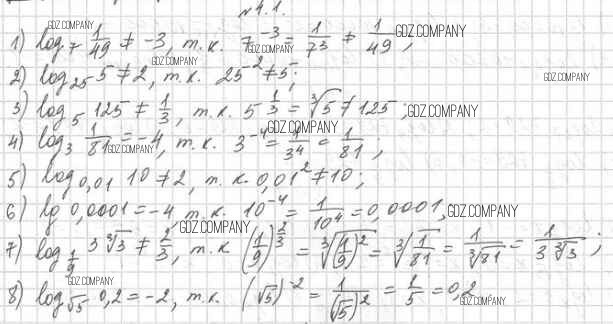 №4.1.
1) log₇ 1/49 ≠ -3, т.к. 7⁻³ = 1/7³ ≠ 1/49;
2) log₂₅ 5 ≠ 2, т.к. 25⁻² ≠ 5;
3) log₅ 125 ≠ 1/3, т.к. 5^(1/3) = ∛5 ≠ 125;
4) log₃ 1/81 = -4, т.к. 3⁻⁴ = 1/3⁴ = 1/81;
5) log₀,₀₁ 10 ≠ 2, т.к. 0,01² ≠ 10;
6) lg 0,0001 = -4, т.к. 10⁻⁴ = 1/10⁴ = 0,0001,
7) log_(1/9) 3∛3 ≠ 2/3, т.к (1/9)^(2/3) = ∛((1/9)²) = ∛(1/81) = 1/∛81 = 1/(3∛3);
8) log_√5 0,2 = -2, т.к. (√5)⁻² = 1/(√5)² = 1/5 = 0,2
GDZ.COMPANY
GDZ.COMPANY
GDZ.COMPANY
GDZ.COMPANY
GDZ.COMPANY
GDZ.COMPANY
GDZ.COMPANY
GDZ.COMPANY
GDZ.COMPANY
GDZ.COMPANY
GDZ.COMPANY
GDZ.COMPANY